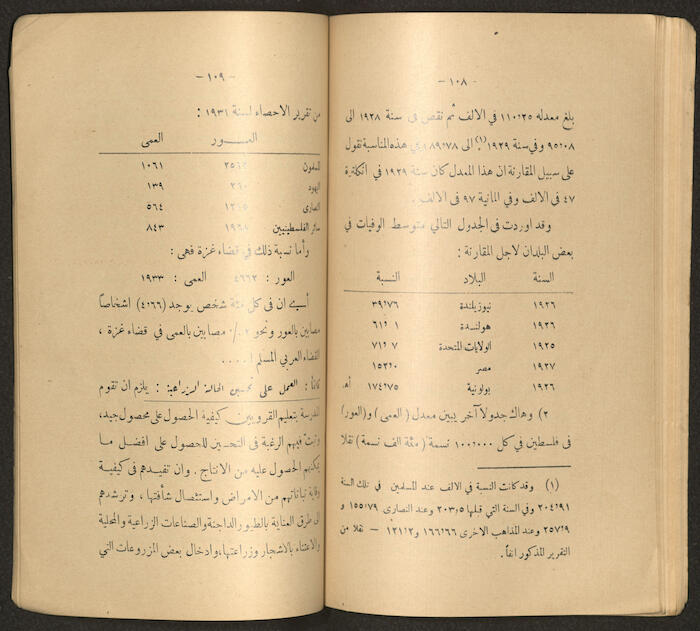 — ١٠٨ —
بلغ معدله ١١٠٬٢٥ في الالف ثم نقص في سنة ١٩٢٨ الى
٩٥٬٠٨ وفي سنة ١٩٢٩ (١) الى ٨٩٬٧٨ وفي هذه المناسبة نقول
على سبيل المقارنة ان هذا المعدل كان سنة ١٩٢٩ في انكلترة
٤٧ في الالف وفي المانية ٩٧ في الالف.
وقد اوردت في الجدول التالي متوسط الوفيات في
بعض البلدان لاجل المقارنة :
السنة البلاد النسبة
١٩٢٦ نيوزيلندة ٣٩٬٧٦
١٩٢٦ هولندة
١٩٢٥ الولايات المتحدة
١٩٢٧ مصر
١٩٢٦ بولونية ١٧٤٬٧٥ اهـ
٢) وهاك جدولاً آخر يبين معدل (العمى) و(العور)
في فلسطين في كل ١٠٠٬٠٠٠ نسمة (مئة الف نسمة) نقلا
(١) وقد كانت النسبة في الالف عند المسلمين في تلك السنة
٢٠٤٬٩١ وفي السنة التي قبلها ٢٠٣٬٥ وعند النصارى ١٥٥٬٧٩ و
٢٥٧٬٩ وعند المذاهب الاخرى ١٦٦٬٦٦ و ١٢١٬٢ — نقلا من
التقرير المذكور آنفاً.
— ١٠٩ —
من تقرير الاحصاء لسنة ١٩٣١ :
العور العمى
المسلمون ١٠٦١
اليهود ١٣٩
النصارى ٥٦٤
سائر الفلسطينيين ٨٤٣
وأما نسبة ذلك في قضاء غزة فهي :
العور : ٤٦٦٢ العمى : ١٩٣٣
أي ان في كل مئة شخص يوجد (٤٬٦٦) اشخاصاً
مصابين بالعور ونحو ٢٪ مصابين بالعمى في قضاء غزة ،
القضاء العربي المسلم !....
ثالثاً : العمل على تحسين الحالة الزراعية : يلزم ان تقوم
المدرسة بتعليم القرويين كيفية الحصول على محصول جيد،
وتبث فيهم الرغبة في التحسين للحصول على افضل ما
يمكنهم الحصول عليه من الانتاج. وان تفيدهم في كيفية
وقاية نباتاتهم من الامراض واستئصال شأفتها ، وترشدهم
الى طرق العناية بالطيور الداجنة والصناعات الزراعية والمحلية
والاعتناء بالاشجار وزراعتها، وادخال بعض المزروعات التي